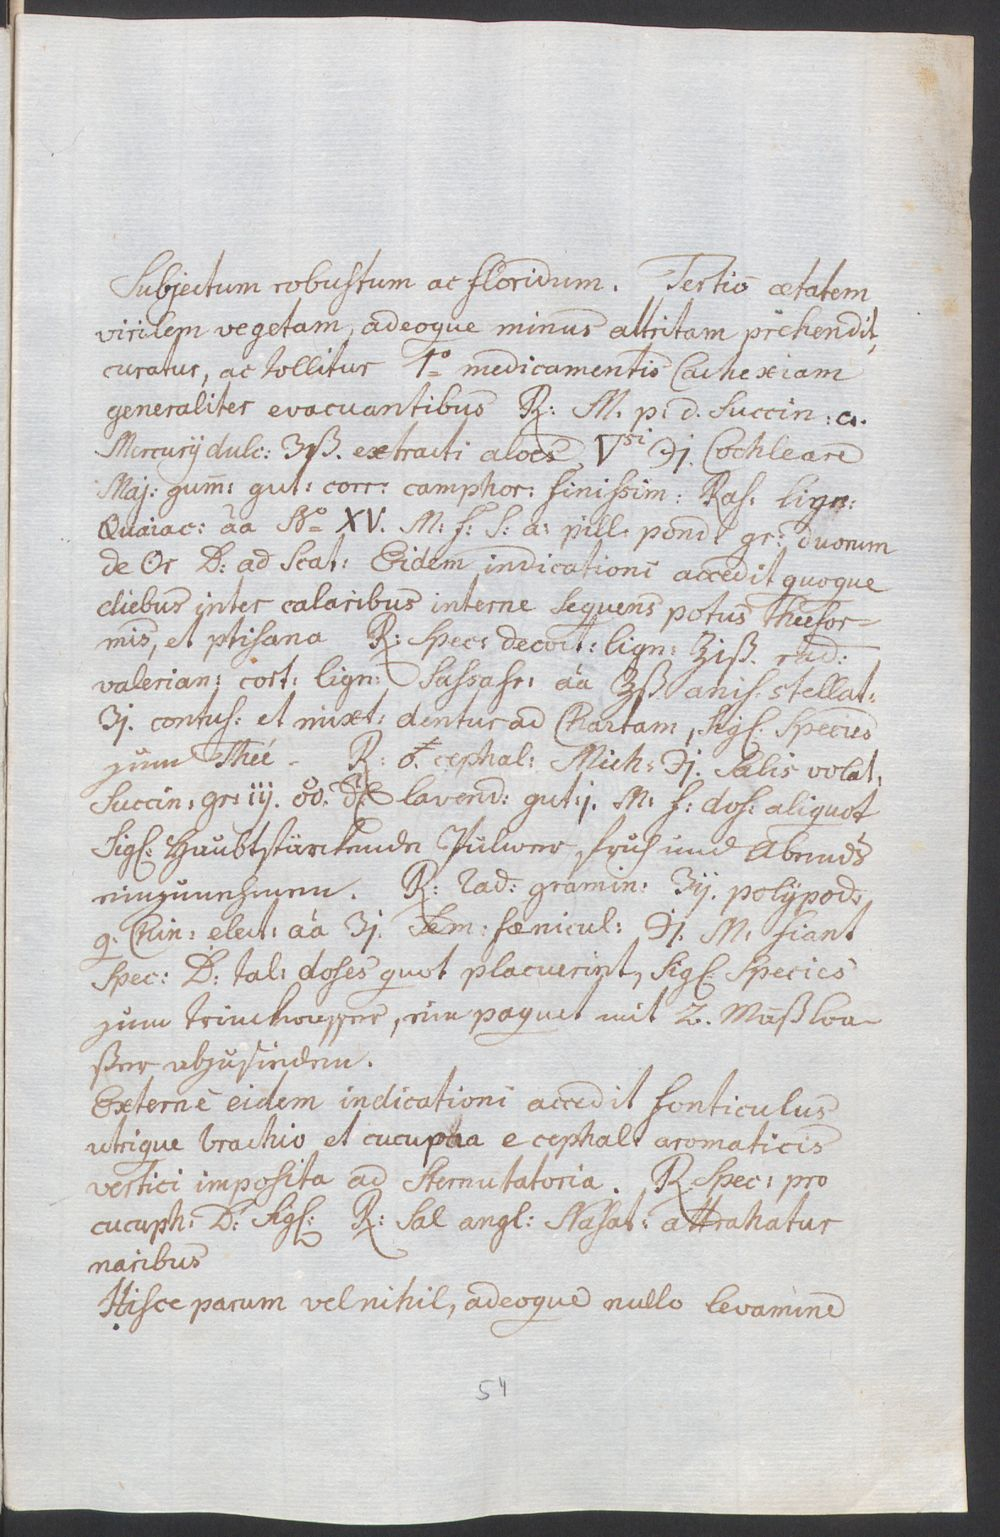 Subjectum robustum ac floridum. Tertiò ætatem
virilem vegetam, adeoque minus attritam prehendit,
curatur, ac tollitur 1º medicamentis Cachexiam
generaliter evacuantibus ℞: M. p: d. Succin: c.
Mercurÿ dulc: ʒiß. extracti aloes ▽si ℈j. Cochleare
Maj: gum̄: gut: corr: camphor: finissim: Ras: lign:
Quaiac: āa XV. M: f: S: a: pill: pond: gr: duorum
de Or D: ad Scat: Eidem indicationi accedit quoque
diebus inter calaribus interne sequens potus Theefor=
mis, et ptisana ℞: Spec: decoct: lign: ℥iß. rad:
valerian: cort: lign: Sassafr: āa ℥ß anis: stellat:
ʒj. contus: et mixt: dentur ad Chartam, Sigl: Species
zum Theé - ℞: cephal: Mich: ℈j. Salis volat:
Succin: gr: iij. lavend: gut: j. M: f: dos: aliquot
Sigl: Haubtstärckende Pulwer, fruh und Abends
einzunehmen. ℞: Rad: gramin: ʒij. polÿpod:
q. Chin: elect: āa ʒj. Sem: fœnicul: ℈j. M: fiant
Spec: D: tal: doses quot placuerint, Sigl Species
zum trinckwasser, ein paquet mit 2. Maß wa-
ßer abzusieden.
Externè eidem indicationi accedit fonticulus
utrique brachio et cucupha e cephal: aromaticis
vertici imposita ad Sternutatoria. ℞ Spec: pro
cucuph: D: Sigl: ℞: Sal angl: Nasat: attrahatur
naribus
Hisce parum vel nihil, adeoque nullo levamine
54